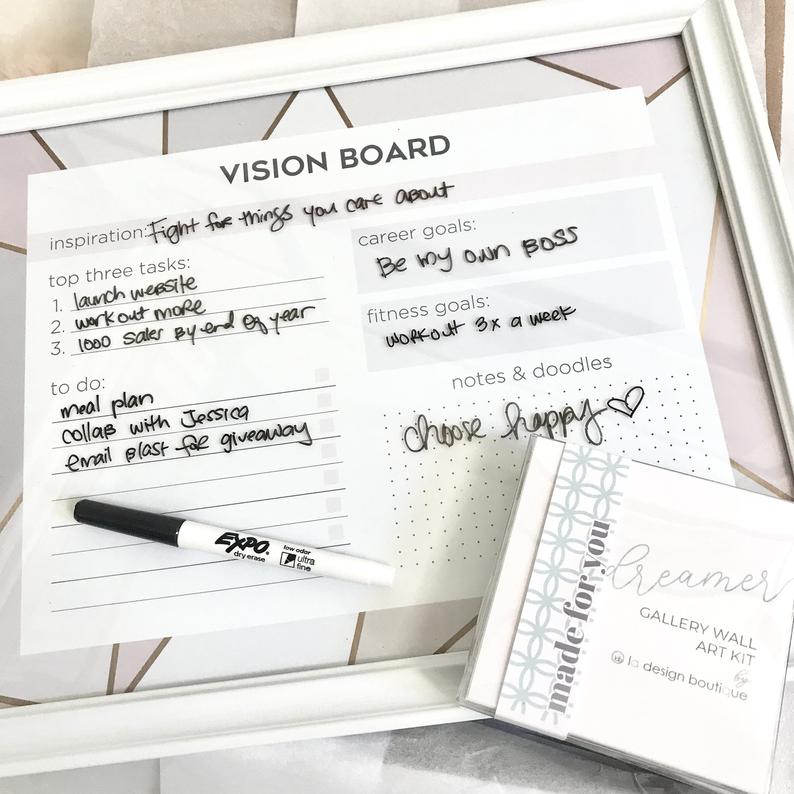 VISION BOARD
inspiration: Fight for things you care about
top three tasks:
1. launch website
2. work out more
3. 1000 sales by end of year
to do:
meal plan
collab with Jessica
email blast for giveaway
career goals:
Be my own BOSS
fitness goals:
workout 3x a week
notes & doodles
choose happy
EXPO®
dry erase
low odor
ultra
fine
made for you
dreamer
GALLERY WALL
ART KIT
by
la design boutique